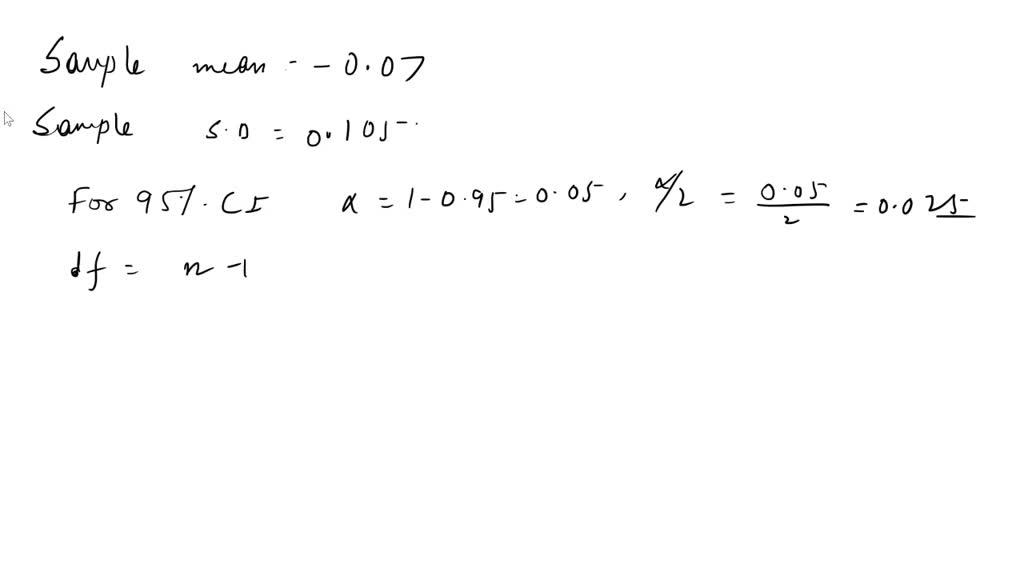 Sample mean = -0.07
Sample S.D = 0.105
For 95%. CI α = 1-0.95 = 0.05, α/2 = 0.05/2 = 0.025
df = n-1